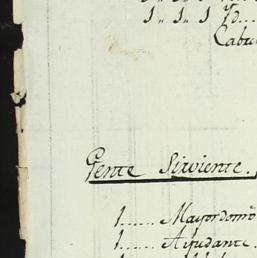 1.. 1.. 1 Yd...
Cabu
Gente Sirviente.
1...... Mayordomo
1...... Ayudante.